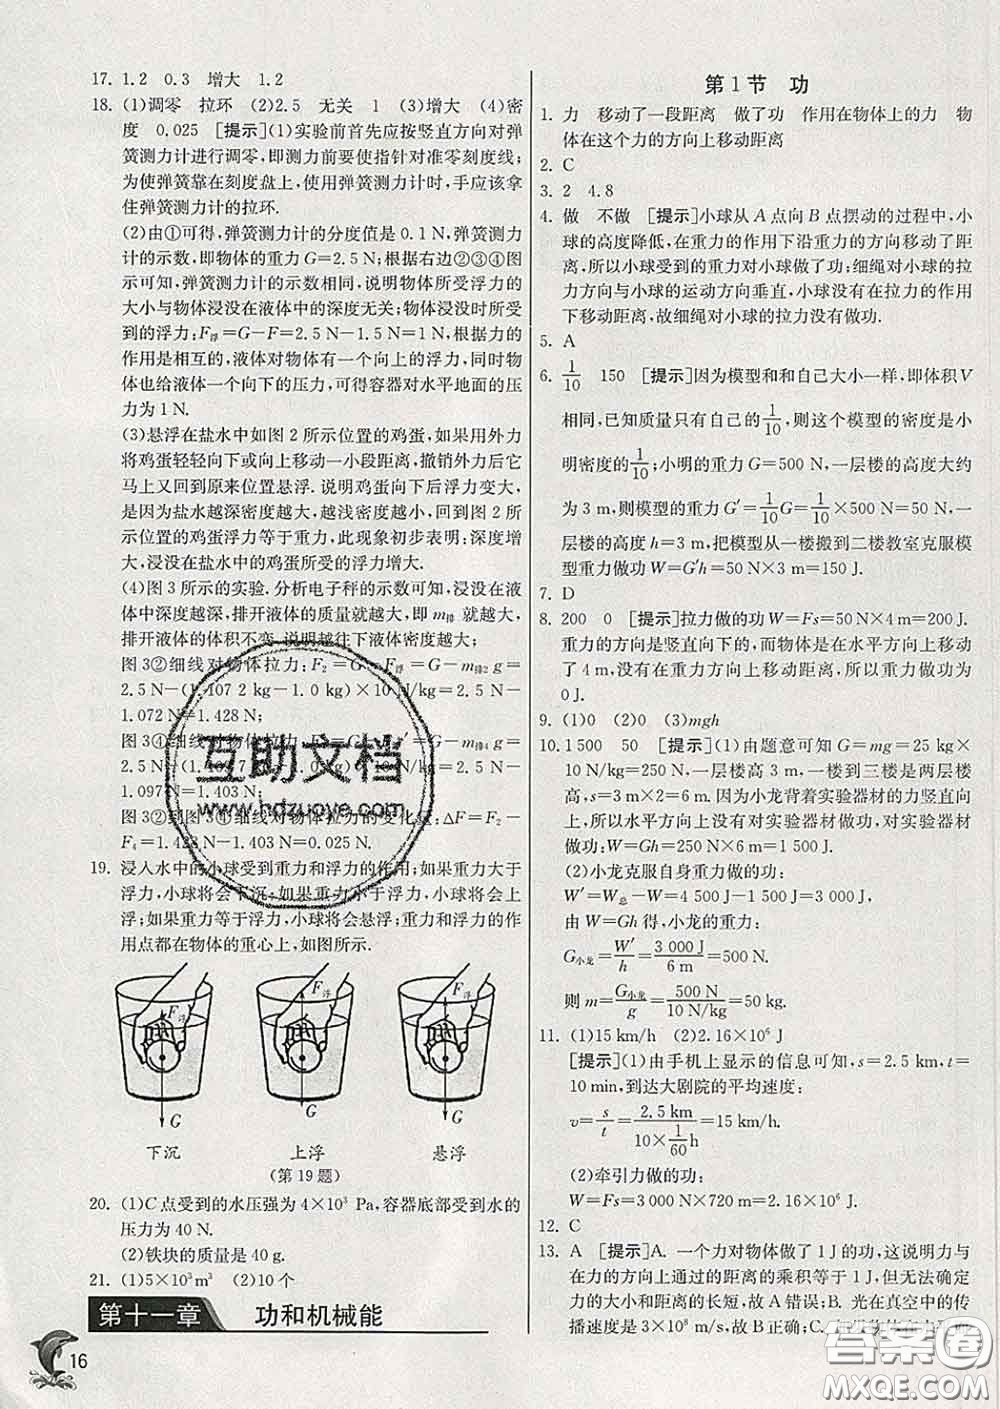 17. 1.2　0.3　增大　1.2
18. (1)调零　拉环　(2)2.5　无关　1　(3)增大　(4)密
度　0.025　[提示](1)实验前首先应按竖直方向对弹
簧测力计进行调零,即测力前要使指针对准零刻度线;
为使弹簧靠在刻度盘上,使用弹簧测力计时,手应该拿
住弹簧测力计的拉环.
(2)由①可得,弹簧测力计的分度值是0.1 N,弹簧测力
计的示数,即物体的重力G=2.5 N;根据右边②③④图
示可知,弹簧测力计的示数相同,说明物体所受浮力的
大小与物体浸没在液体中的深度无关;物体浸没时所受
到的浮力:F浮=G-F=2.5 N-1.5 N=1 N,根据力的
作用是相互的,液体对物体有一个向上的浮力,同时物
体也给液体一个向下的压力,可得容器对水平地面的压
力为1 N.
(3)悬浮在盐水中如图2所示位置的鸡蛋,如果用外力
将鸡蛋轻轻向下或向上移动一小段距离,撤销外力后它
马上又回到原来位置悬浮.说明鸡蛋向下后浮力变大,
是因为盐水越深密度越大,越浅密度越小,回到图2所
示位置的鸡蛋浮力等于重力,此现象初步表明:深度增
大,浸没在盐水中的鸡蛋所受的浮力增大.
(4)图3所示的实验.分析电子秤的示数可知,浸没在液
体中深度越深,排开液体的质量就越大,即m排就越大,
排开液体的体积不变,说明越往下液体密度越大;
图3②细线对物体拉力:F₂=G-F浮=G-m排2g=
2.5 N-(1.107 2 kg-1.0 kg)×10 N/kg=2.5 N-
1.072 N=1.428 N;
图3④细线对物体拉力:F₄=G-F浮=G-m排4g=
2.5 N-(1.109 7 kg-1.0 kg)×10 N/kg=2.5 N-
1.097 N=1.403 N;
图3②到图3④细线对物体拉力的变化量:ΔF=F₂-
F₄=1.428 N-1.403 N=0.025 N.
19. 浸入水中的小球受到重力和浮力的作用;如果重力大于
浮力,小球将会下沉;如果重力小于浮力,小球将会上
浮;如果重力等于浮力,小球将会悬浮;重力和浮力的作
用点都在物体的重心上,如图所示.
F浮　F浮　F浮
G　G　G
下沉　上浮　悬浮
(第19题)
20. (1)C点受到的水压强为4×10³ Pa,容器底部受到水的
压力为40 N.
(2)铁块的质量是40 g.
21. (1)5×10³m³　(2)10个
第十一章　功和机械能
16
第1节　功
1. 力　移动了一段距离　做了功　作用在物体上的力　物
体在这个力的方向上移动距离
2. C
3. 2　4.8
4. 做　不做　[提示]小球从A点向B点摆动的过程中,小
球的高度降低,在重力的作用下沿重力的方向移动了距
离,所以小球受到的重力对小球做了功;细绳对小球的拉
力方向与小球的运动方向垂直,小球没有在拉力的作用
下移动距离,故细绳对小球的拉力没有做功.
5. A
6. 1/10　150　[提示]因为模型和和自己大小一样,即体积V
相同,已知质量只有自己的1/10,则这个模型的密度是小
明密度的1/10;小明的重力G=500 N,一层楼的高度大约
为3 m,则模型的重力G′=1/10G=1/10×500 N=50 N,一
层楼的高度h=3 m,把模型从一楼搬到二楼教室克服模
型重力做功W=G′h=50 N×3 m=150 J.
7. D
8. 200　0　[提示]拉力做的功W=Fs=50 N×4 m=200 J.
重力的方向是竖直向下的,而物体是在水平方向上移动
了4 m,没有在重力方向上移动距离,所以重力做功为
0 J.
9. (1)0　(2)0　(3)mgh
10. 1 500　50　[提示](1)由题意可知G=mg=25 kg×
10 N/kg=250 N,一层楼高3 m,一楼到三楼是两层楼
高,s=3 m×2=6 m.因为小龙背着实验器材的力竖直向
上,所以水平方向上没有对实验器材做功,对实验器材
做功:W=Gh=250 N×6 m=1 500 J.
(2)小龙克服自身重力做的功:
W′=W总-W=4 500 J-1 500 J=3 000 J,
由W=Gh得,小龙的重力:
G小龙=W′/h=3 000 J/6 m=500 N.
则m=G小龙/g=500 N/10 N/kg=50 kg.
11. (1)15 km/h　(2)2.16×10⁶ J
[提示](1)由手机上显示的信息可知,s=2.5 km,t=
10 min,到达大剧院的平均速度:
v=s/t=2.5 km/(10×1/60 h)=15 km/h.
(2)牵引力做的功:
W=Fs=3 000 N×720 m=2.16×10⁶ J.
12. C
13. A　[提示]A.一个力对物体做了1 J的功,这说明力与
在力的方向上通过的距离的乘积等于1 J,但无法确定
力的大小和距离的长短,故A错误;B.光在真空中的传
播速度是3×10⁸ m/s,故B正确;C.
互助文档
www.hdzuoye.com
答案圈
MXQE.COM